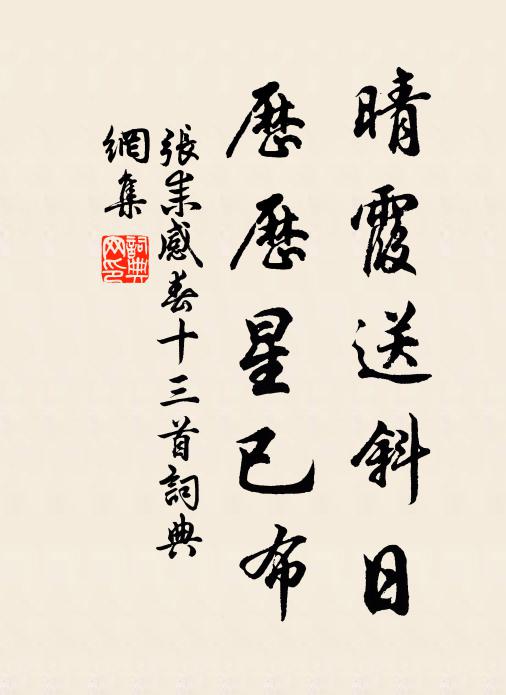 晴霞送斜日
歷歷星已布
張耒感春十三首詞典
網集
詞典
网印